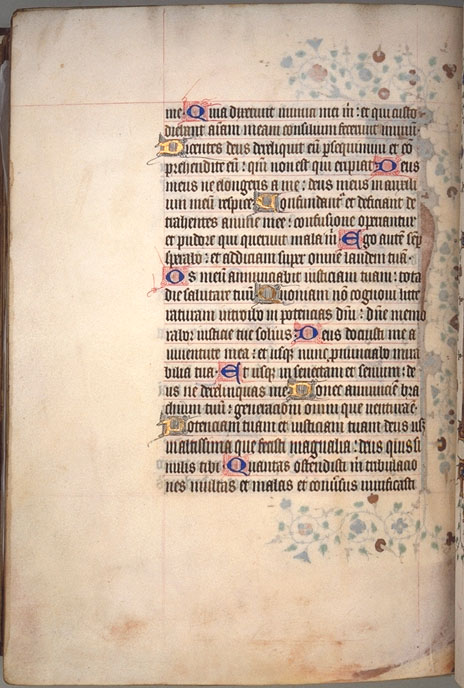 me Quia dixerunt inimici mei m̄ : et qui custo
diebant aīam meam consilium fecerunt in unū
Dicentes deus dereliquit eū p̄sequimini et cō
prehendite eū : qm̄ non est qui eripiat Deus
meus ne elongeris a me : deus meus in auxili
um meū respice Confundant᷑ et deficiant de
trahentes anime mee : confusione operiantur
et pudore qui querunt mala m̄ Ego autē sēp
sperabo : et adiciam super omnē laudem tuā
Os meum annunciabit iusticiam tuam : tota
die salutare tuū Quoniam nō cognoui litte
raturam introibo in potencias dn̄i : dn̄e memo
rabor iusticie tue solius Deus docuisti me a
iuuentute mea : et usq̄ nunc p̄nunciabo mira
bilia tua Et usq̄ in senectam et senium : de
us ne derelinquas me Donec annunciē bra
chium tuū : generacioni omni que uentura ē
Potenciam tuam et iusticiam tuam deus usq̄
in altissima que fecisti magnalia : deus quis si
milis tibi Quantas ostendisti m̄ tribulacio
nes multas et malas et conu̓sus uiuificasti